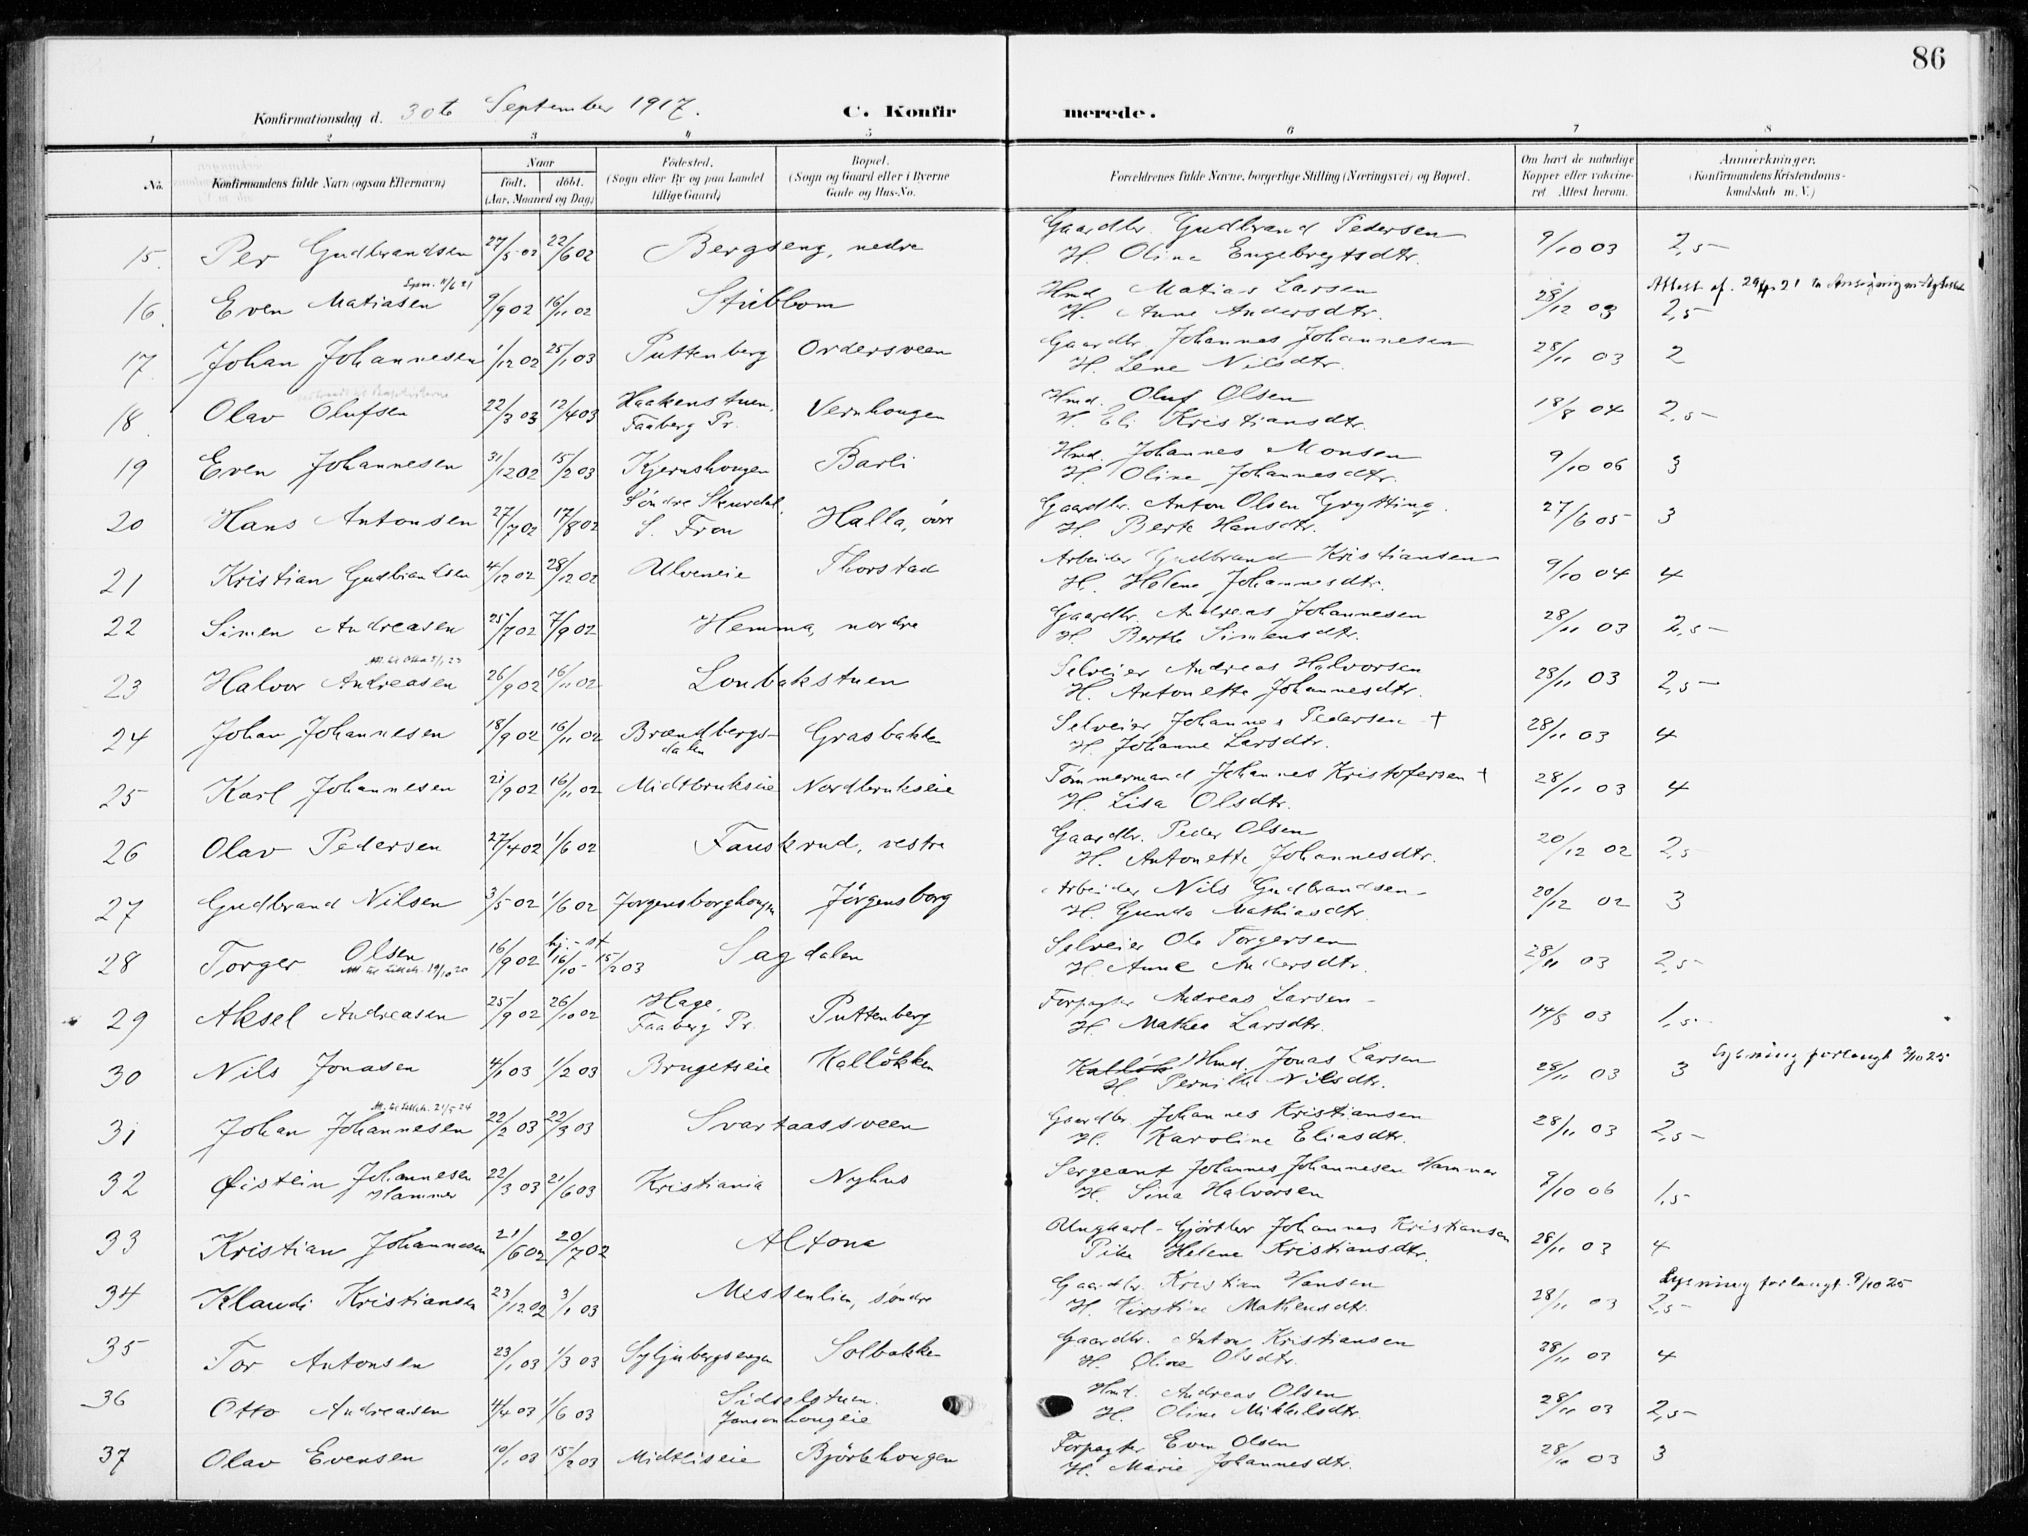 86
Konfirmationsdag d. 30te September 1917.
C. Konfirmerede.
1 2 3 4 5 6 7 8
No.
Konfirmandens fulde Navn (ogsaa Efternavn)
Naar
født. døbt.
(Aar, Maaned og Dag)
Fødested.
(Sogn eller By og paa Landet
tillige Gaard)
Bopæl.
(Sogn og Gaard eller i Byerne
Gade og Hus-No.
Forældrenes fulde Navne, borgerlige Stilling (Næringsvei) og Bopæl.
Om havt de naturlige
Kopper eller vaccine-
ret. Attest herom.
Anmærkninger.
(Konfirmandens Kristendoms-
kundskab m. V.)
Gaardbr. Gudbrand Pedersen
15. Per Gudbrandsen 27/5 02 22/6 02 Bergseng, nedre H. Oline Engebregtsdtr. 9/10 03 2,5
16. Even Matiasen 9/9 02 16/11 02 Stubbom Hmd. Matias Larsen 28/12 03 2,5
H. Anne Andersdtr.
Gaardbr. Johannes Johannesen
17. Johan Johannesen 1/12 02 25/1 03 Puttenberg Ordersveen H. Lene Nilsdtr. 28/11 03 2
18. Olav Olufsen 22/3 03 12/4 03 Haakenstuen, Faaberg Pr. Vernhougen Hmd. Oluf Olsen 18/8 04 2,5
H. Eli Kristiansdtr.
19 Even Johannesen 31/12 02 15/2 03 Kjernshougen Barli Hmd. Johannes Monsen 9/10 06 3
H. Oline Johannesdtr.
20 Hans Antonsen 27/7 02 17/8 02 Søndre Skurdal, S. Fron Halla, øvre Gaardbr. Anton Olsen Grytting. 27/6 05 3
H. Berte Hansdtr.
21 Kristian Gudbrandsen 4/12 02 28/12 02 Ulveneie Thorstad Arbeider Gudbrand Kristiansen 9/10 04 4
H. Helene Johannesdtr.
22 Simen Andreasen 25/7 02 7/9 02 Hemma, nordre Gaardbr. Andreas Johannesen 28/11 03 2,5
H. Berthe Simensdtr.
23 Halvor Andreasen 26/9 02 16/11 02 Lonbakstuen Selveier Andreas Halvorsen 28/11 03 2,5
H. Antonette Johannesdtr.
24 Johan Johannesen 18/9 02 16/11 02 Brændbergs-dalen Grasbakken Selveier Johannes Pedersen + 28/11 03 4
H. Johanne Larsdtr.
25 Karl Johannesen 21/9 02 16/11 02 Midtbrukseie Nordbrukseie Tømmermand Johannes Kristofersen + 28/11 03 4
H. Lisa Olsdtr.
26 Olav Pedersen 27/4 02 1/6 02 Fauskrud, vestre Gaardbr. Peder Olsen 20/12 02 2,5
H. Antonette Johannesdtr.
27 Gudbrand Nilsen 3/5 02 1/6 02 Jørgensborghougen Jørgensborg Arbeider Nils Gudbrandsen 20/12 02 3
H. Gunda Mathiasdtr.
28 Torger Olsen 16/9 02 hj. 16/10 - st. 15/2 03 Sagdalen Selveier Ole Torgersen 28/11 03 2,5
H. Anne Andersdtr.
29 Aksel Andreasen 25/9 02 26/10 02 Hage, Faaberg Pr. Puttenberg Forpagter Andreas Larsen 14/8 03 1,5
H. Mathea Larsdtr.
30 Nils Jonasen 4/1 03 1/2 03 Brugetseie Kalløkken Hmd. Jonas Larsen 28/11 03 3 Lysning forlangt 2/10 25
H. Pernille Nilsdtr.
31 Johan Johannesen 22/2 03 22/3 03 Svartaassveen Gaardbr. Johannes Kristiansen 28/11 03 2,5
H. Karoline Eliasdtr.
32 Øistein Johannesen Hammer 22/3 03 21/6 03 Kristiania Nyhus Sergeant Johannes Johannesen Hammer 9/10 06 1,5
H. Sina Halvorsen
33 Kristian Johannesen 21/6 02 20/7 02 Altona Ungkarl - Gjørtler Johannes Kristiansen 28/11 03 4
Pike Helene Kristiansdtr.
34 Klaudi Kristiansen 23/12 02 3/1 03 Messenlien, søndre Gaardbr. Kristian Hansen 28/11 03 2,5 Lysning forlangt 9/10 25
H. Kirstine Mathensdtr.
35 Tor Antonsen 23/1 03 1/3 03 Syljubergsengen Solbakken Gaardbr. Anton Kristiansen 28/11 03 4
H. Oline Olsdtr.
36 Otto Andreasen 4/4 03 1/6 03 Sidselstuen. Jansonhougeie Hmd. Andreas Olsen 28/11 03 2,5
H. Oline Mikkelsdtr.
37 Olav Evensen 10/1 03 15/2 03 Midtliseie Bjørkhougen Forpagter Even Olsen 28/11 03 3
H. Marie Johannesdtr.